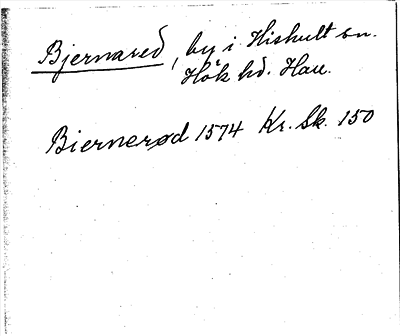 Bjernared, by i Hishult sn.
Hök hd. Hall.
Biernerød 1574 Kr. Sk. 150